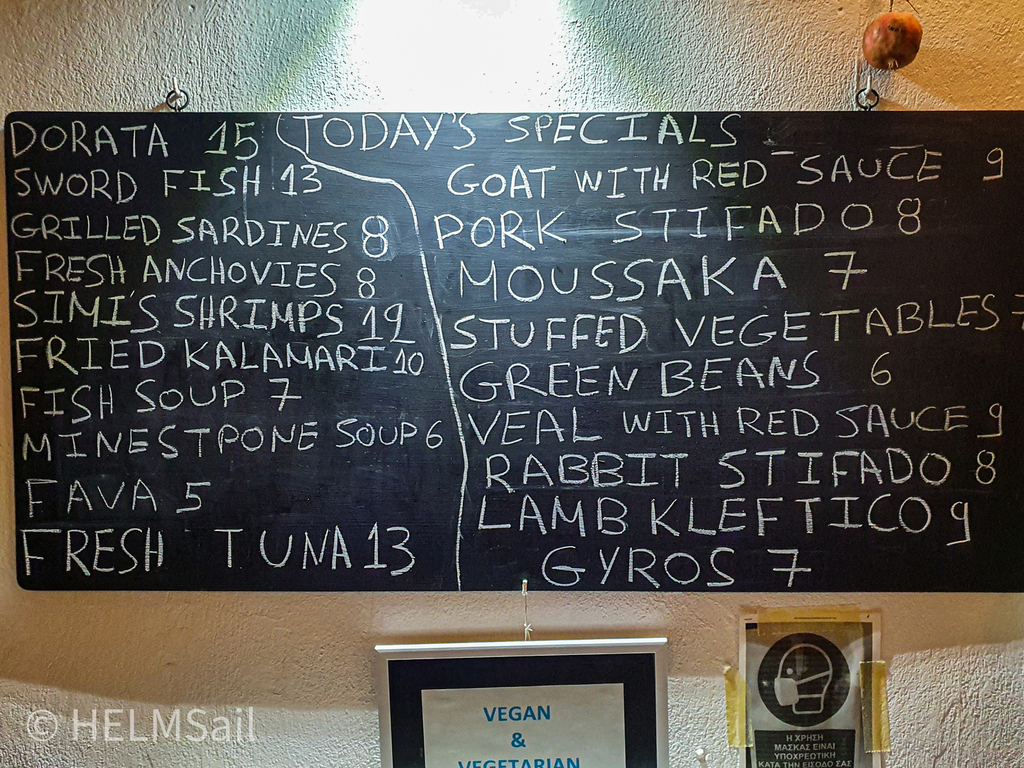 DORATA 15
SWORD FISH 13
GRILLED SARDINES 8
FRESH ANCHOVIES 8
SIMI'S SHRIMPS 12
FRIED KALAMARI 10
FISH SOUP 7
MINESTPONE SOUP 6
FAVA 5
FRESH TUNA 13
TODAY'S SPECIALS
GOAT WITH RED SAUCE 9
PORK STIFADO 8
MOUSSAKA 7
STUFFED VEGETABLES 7
GREEN BEANS 6
VEAL WITH RED SAUCE 9
RABBIT STIFADO 8
LAMB KLEFTICO 9
GYROS 7
VEGAN
&
VEGETARIAN
Η ΧΡΗΣΗ
ΜΑΣΚΑΣ ΕΙΝΑΙ
ΥΠΟΧΡΕΩΤΙΚΗ
ΚΑΤΑ ΤΗΝ ΕΙΣΟΔΟ ΣΑΣ
© HELMSail